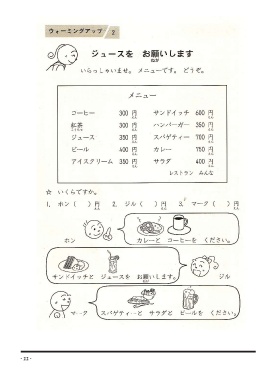 ウォーミングアップ 2
ジュースを お願いします
ねが
いらっしゃいませ。 メニューです。 どうぞ。
メニュー
コーヒー 300 円 サンドイッチ 600 円
紅茶 300 円 ハンバーガー 350 円
ジュース 350 円 スパゲティー 700 円
ビール 400 円 カレー 750 円
アイスクリーム 350 円 サラダ 400 円
レストラン みんな
☆ いくらですか。
1. ホン ( )円 2. ジル ( )円 3. マーク ( )円
カレーと コーヒーを ください。
ホン
サンドイッチと ジュースを お願いします。
ジル
マーク
スパゲティーと サラダと ビールを ください。